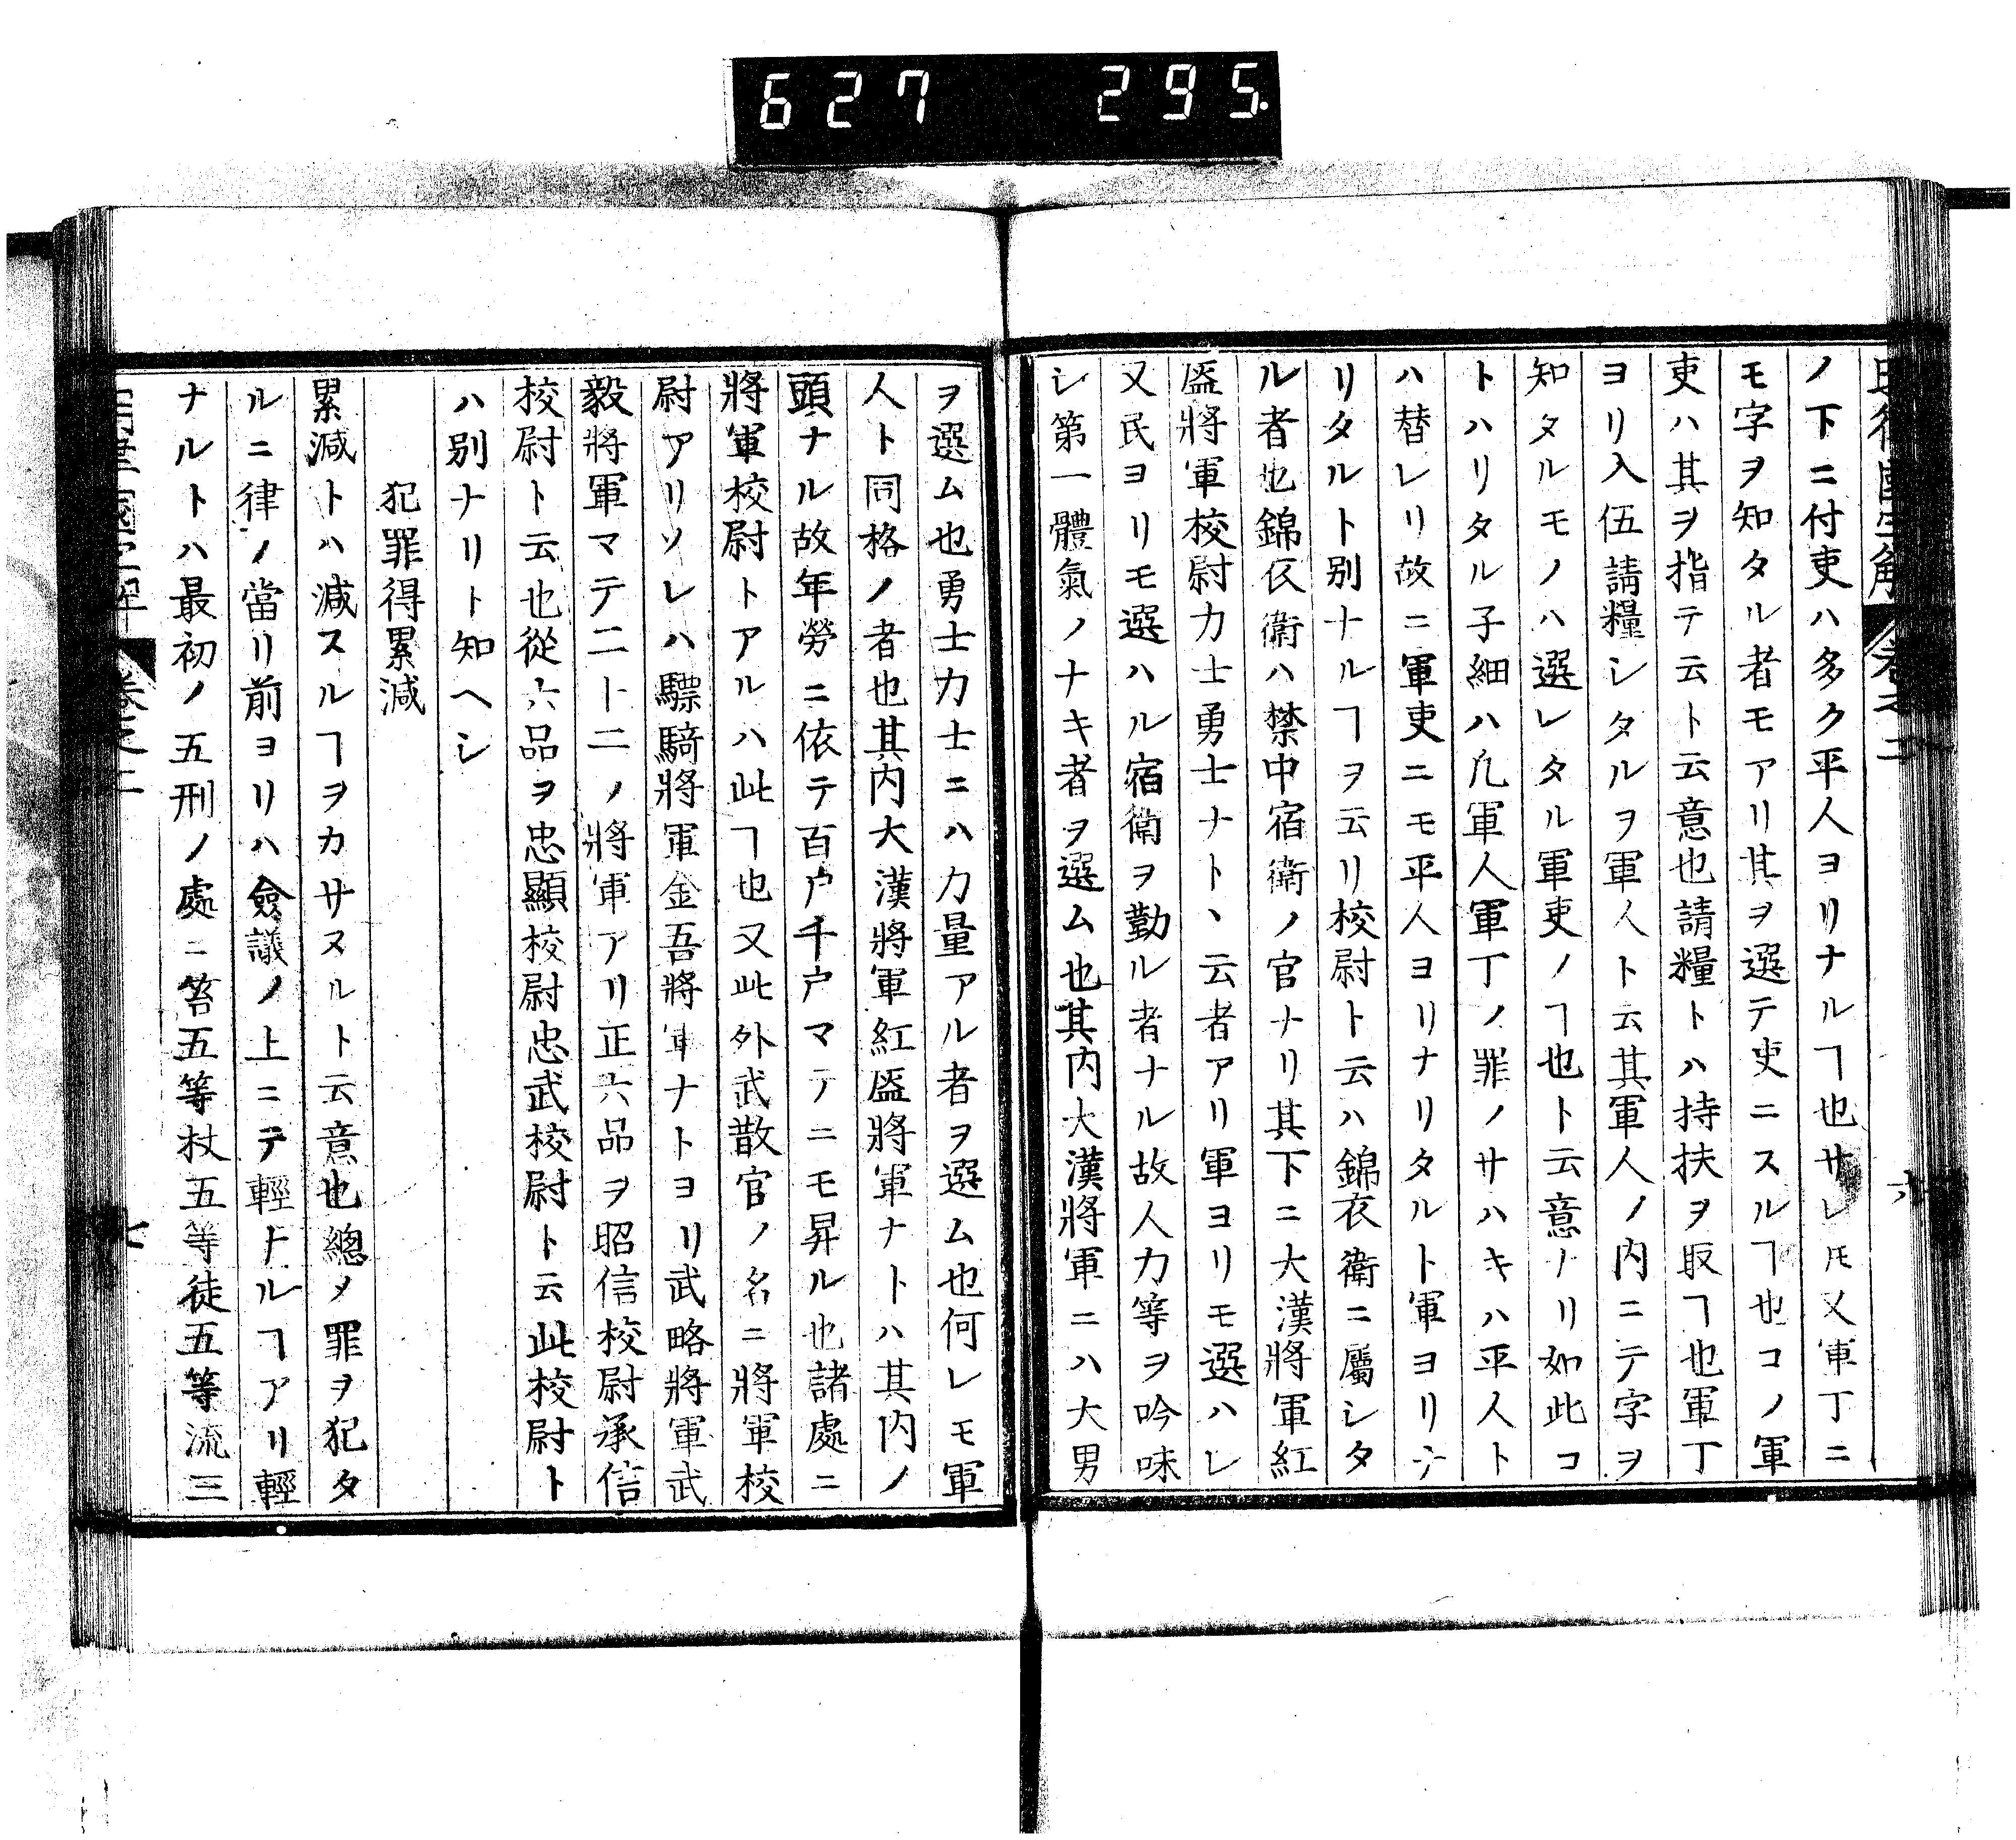 627 295
ノ下ニ付吏ハ多ク平人ヨリナルヿ也サレ𪜈又軍丁ニ
モ字ヲ知タル者モアリ其ヲ選テ吏ニスルヿ也コノ軍
吏ハ其ヲ指テ云ト云意也請糧トハ持扶ヲ取ヿ也軍丁
ヨリ入伍請糧シタルヲ軍人ト云其軍人ノ内ニテ字ヲ
知タルモノハ選レタル軍吏ノヿ也ト云意ナリ如此コ
トハリタル子細ハ凢軍人軍丁ノ罪ノサハキハ平人ト
ハ替レリ故ニ軍吏ニモ平人ヨリナリタルト軍ヨリナ
リタルト別ナルヿヲ云リ校尉ト云ハ錦衣衛ニ屬シタ
ル者也錦衣衛ハ禁中宿衛ノ官ナリ其下ニ大漢將軍紅
盔將軍校尉力士勇士ナトヽ云者アリ軍ヨリモ選ハレ
又民ヨリモ選ハル宿衛ヲ勤ル者ナル故人力等ヲ吟味
シ第一體氣ノナキ者ヲ選ム也其内大漢將軍ニハ大男
ヲ選ム也勇士力士ニハ力量アル者ヲ選ム也何レモ軍
人ト同格ノ者也其内大漢將軍紅盔將軍ナトハ其内ノ
頭ナル故年勞ニ依テ百户千户マテニモ昇ル也諸處ニ
將軍校尉トアルハ此ヿ也又此外武散官ノ名ニ將軍校
尉アリソレハ驃騎將軍金吾將軍ナトヨリ武略將軍武
毅將軍マテ二十二ノ將軍アリ正六品ヲ昭信校尉承信
校尉ト云也從六品ヲ忠顯校尉忠武校尉ト云此校尉ト
ハ别ナリト知ヘシ
犯罪得累減
累減トハ減スルヿヲカサヌルト云意也總メ罪ヲ犯タ
ルニ律ノ當リ前ヨリハ僉議ノ上ニテ輕トルヿアリ輕
ナルトハ最初ノ五刑ノ處ニ笞五等杖五等徒五等流三
卷之二
七